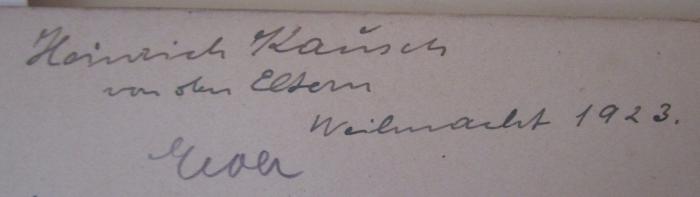 Heinrich Kausch
von den Eltern
Weihnacht 1923.